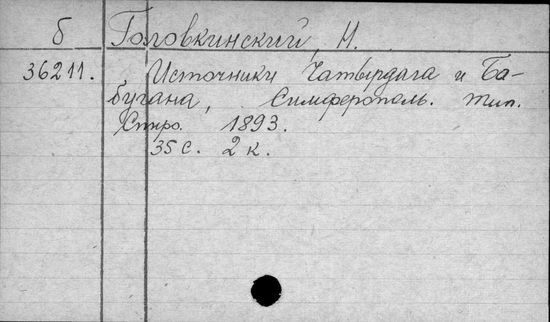 б Головкинский, Н.
36211. Источники Чатырдага и Ба-
бугана, Симферополь. тип.
Спиро. 1893.
35 с. 2 к.